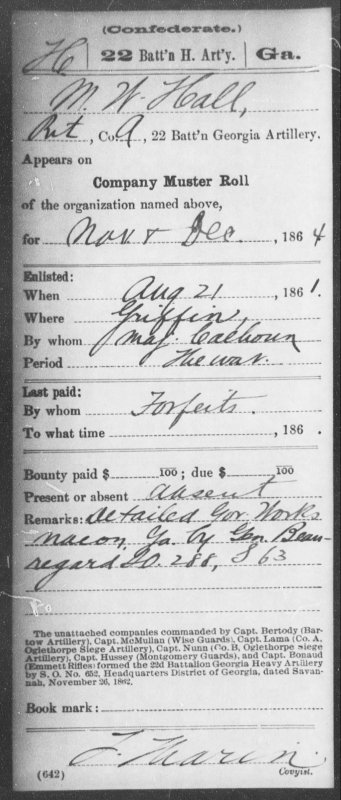 (Confederate.)
H | 22 Batt'n H. Art'y. | Ga.
M. W. Hall,
Pvt, Co. A, 22 Batt'n Georgia Artillery.
Appears on
Company Muster Roll
of the organization named above,
for Nov & Dec., 1864
Enlisted:
When Aug 21, 1861.
Where Griffin,
By whom Maj. Calhoun
Period The war.
Last paid:
By whom Forfeits.
To what time , 186 .
Bounty paid $ 100; due $ 100
Present or absent absent
Remarks: Detailed Gov. Works
Macon, Ga. by Gen. Beau-
regard S.O. 288, 63
The unattached companies commanded by Capt. Bertody (Bar-
tow Artillery), Capt. McMullan (Wise Guards), Capt. Lama (Co. A,
Oglethorpe Siege Artillery), Capt. Nunn (Co. B, Oglethorpe Siege
Artillery), Capt. Hussey (Montgomery Guards), and Capt. Bonaud
(Emmett Rifles) formed the 22d Battalion Georgia Heavy Artillery
by S. O. No. 652, Headquarters District of Georgia, dated Savan-
nah, November 26, 1862.
Book mark:
(642) Copyist.